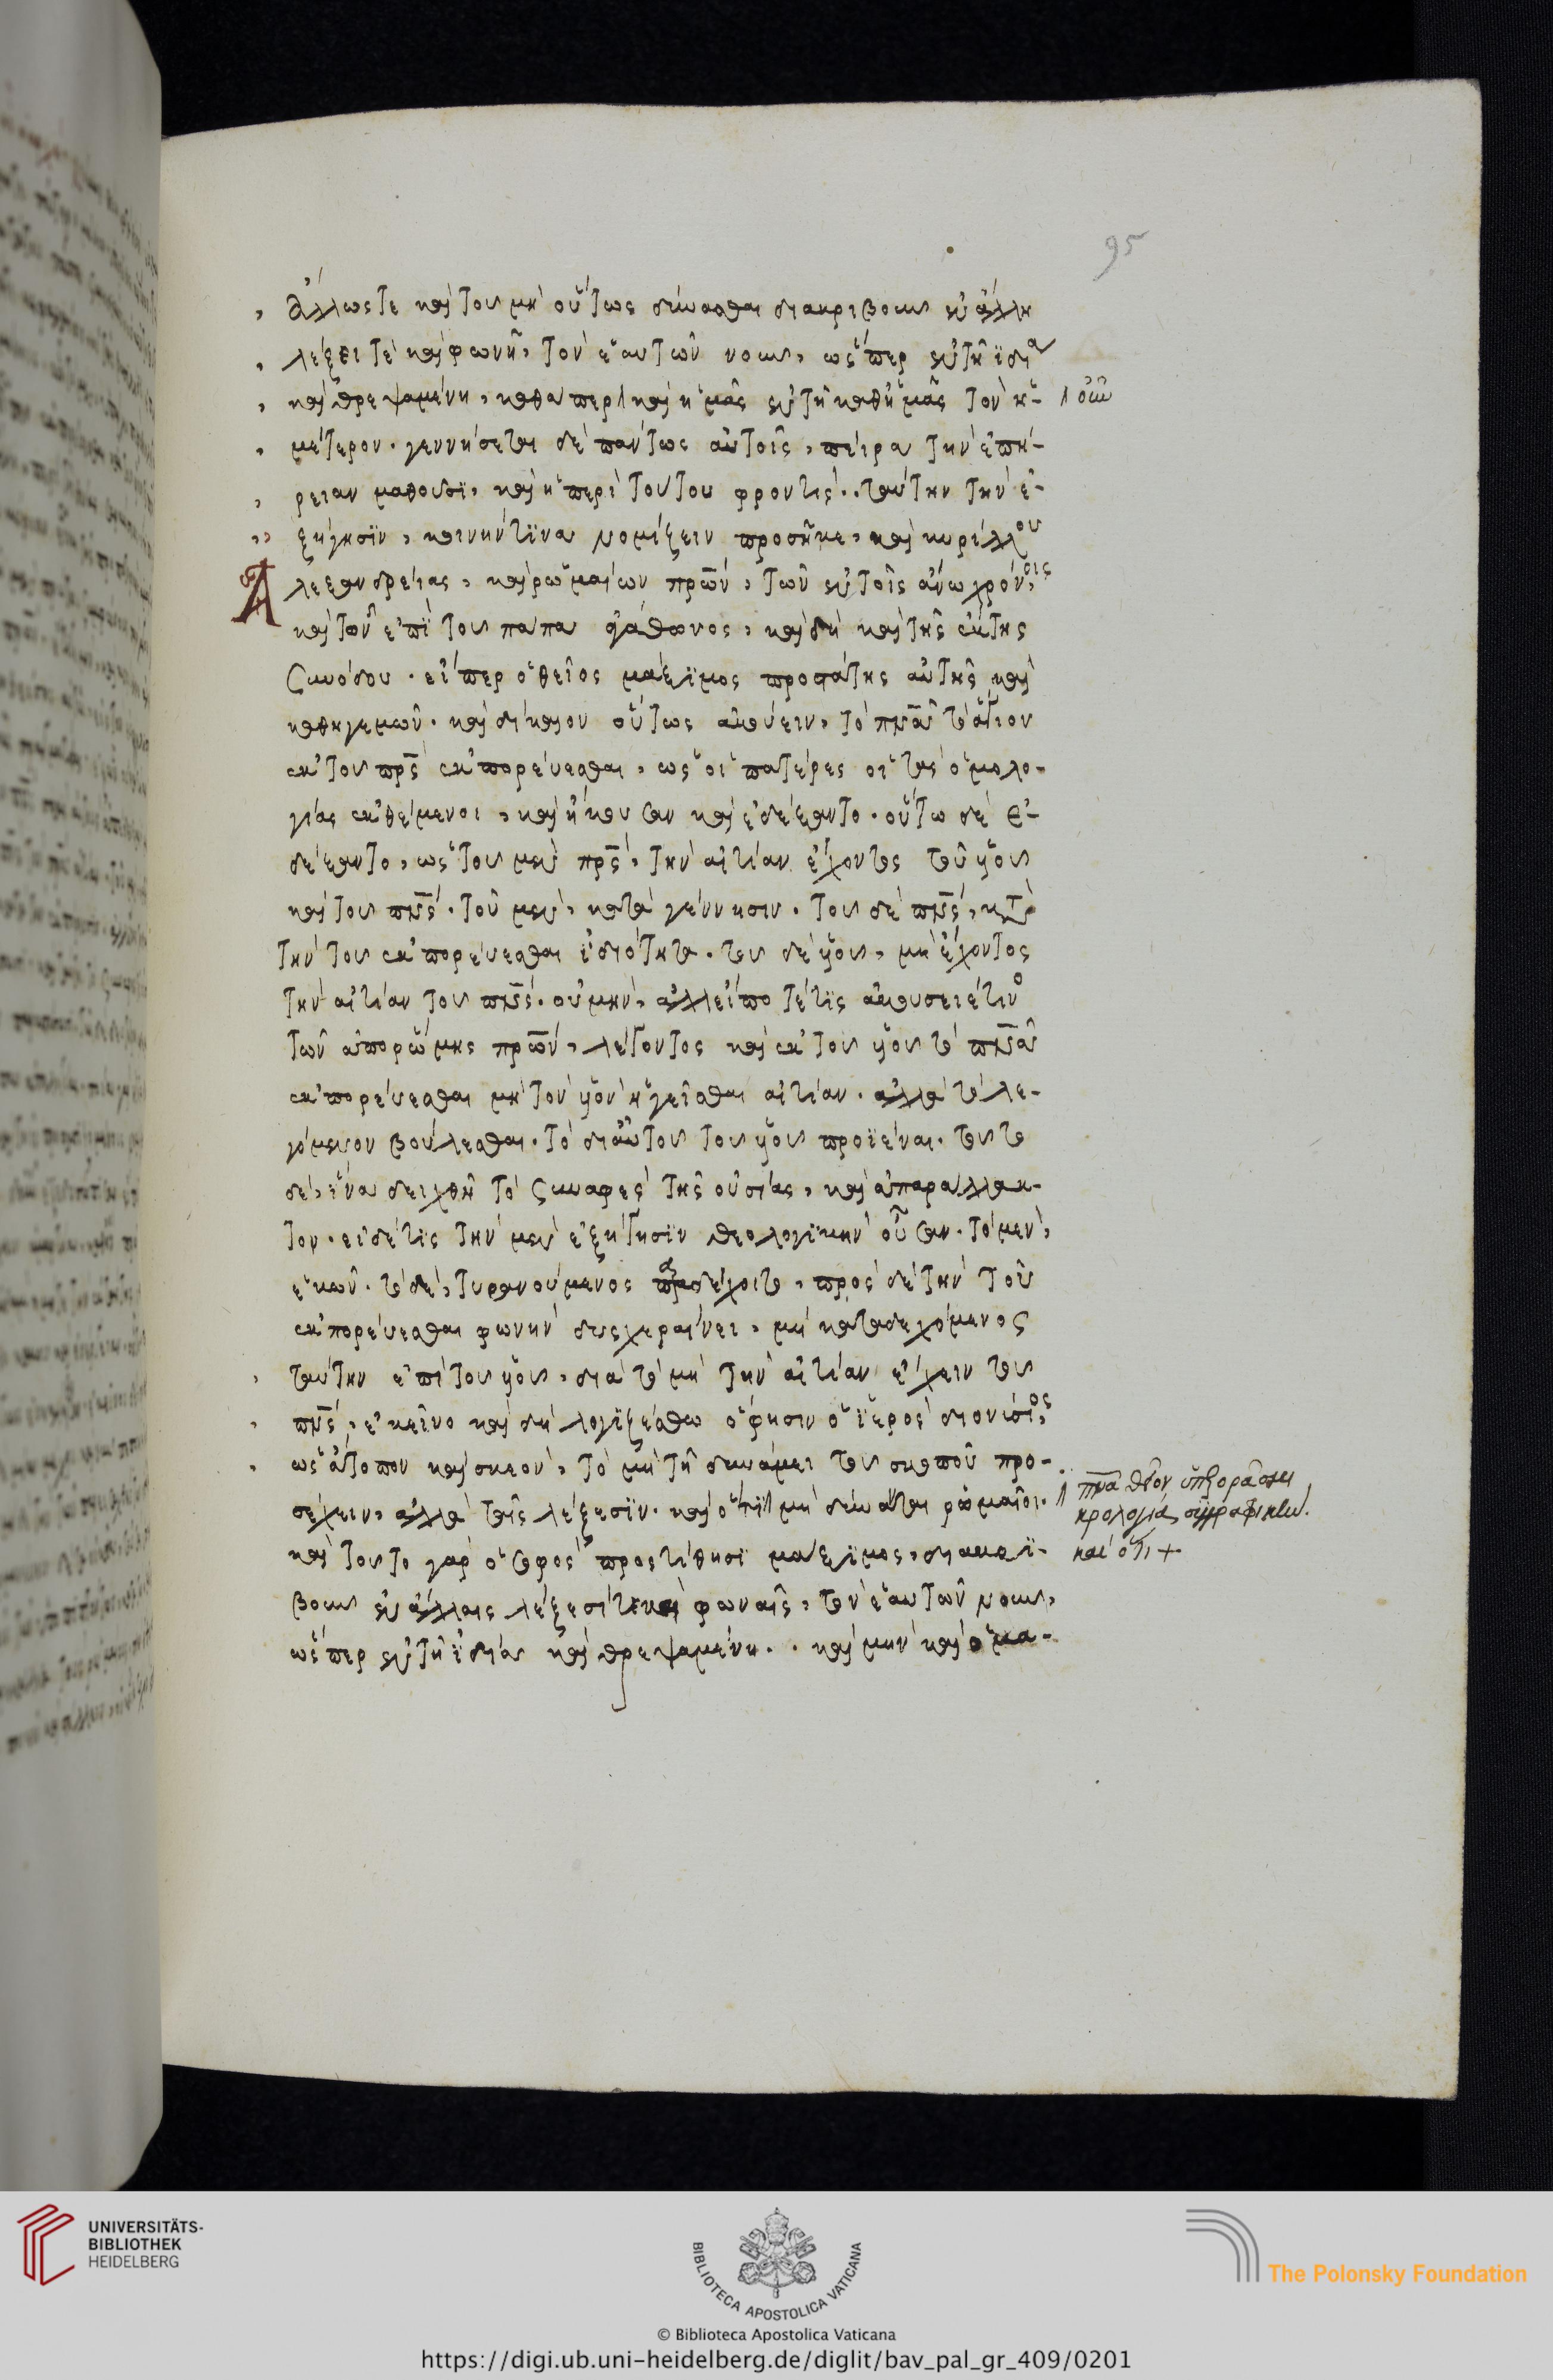 95
ἄλλως τε καὶ τοῦ μὴ οὕτως δύνασθαι διακριβοῦν ἐν ἄλλη
λέξει τὲ καὶ φωνῆ, τὸν ἑαυτῶν νοῦν, ὥσπερ ἐν τῆ ἰδία
καὶ θρεψαμένη, καθάπερ καὶ ἡμᾶς ἐν τῆ καθημᾶς τὸν ἡ-
οὖν
μέτερον. γεννήσεται δὲ πάντως αὐτοῖς, πείρα τὴν ἐπή-
ρειαν μαθοῦσϊ, καὶ ἡ περὶ τούτου φροντίς. ταύτην τὴν ἐ-
ξήγησϊν, κοινήν τϊνα νομίζειν προσῆκε, καὶ κυρίλλου
Ἀλεξανδρείας, καὶ ῥωμαίων πρῶν, τῶν ἐν τοῖς ἄνω χρόνοις,
καὶ τῶν ἐπὶ τοῦ πάπα ἀγάθωνος, καὶ δὴ καὶ τῆς ἕκτης
συνόδου. εἴπερ ὁ θεῖος μάξϊμος προστάτης αὐτῆς καὶ
καθηγεμών. καὶ δίκαιον οὕτως ἀκούειν, τὸ πνᾶ τὸ ἅγιον
ἐκ τοῦ πρς ἐκπορεύεσθαι, ὡς οἱ πατέρες οἱ τὰς ὁμολο-
γίας ἐκθέμενοι, καὶ ἤκουσαν καὶ ἐδέξαντο. οὕτω δὲ ἐ-
δέξαντο, ὡς τοῦ μὲν πρς, τὴν αἰτίαν ἔχοντος τοῦ υἱοῦ
καὶ τοῦ πνς. τοῦ μὲν, κατὰ γέννησιν. τοῦ δὲ πνς, κατὰ
τὴν τοῦ ἐκπορεύεσθαι ἰδιότητα. τοῦ δὲ υἱοῦ, μὴ ἔχοντος
τὴν αἰτίαν τοῦ πνς. οὐ μὴν, ἀλλ εἴ πο τέ τϊς ἀκούσειέ τινο
τῶν ἀπὸ ῥώμης πρῶν, λέγοντος καὶ ἐκ τοῦ υἱοῦ τὸ πνᾶ
ἐκπορεύεσθαι μὴ τὸν υἱὸν ἡγεῖσθαι αἰτίαν. ἀλλὰ τὸ λε-
γόμενον βούλεσθαι. τὸ δι αὐτοῦ τοῦ υἱοῦ προϊέναι. τοῦτο
δὲ, ἵνα δειχθῆ τὸ συναφὲς τῆς οὐσίας, καὶ ἀπαράλλακ-
τον. εἰ δέ τϊς τὴν μὲν ἐξήγησϊν θεολογϊκὴν οὖσαν. τὸ μὲν,
ἑκών. τὸ δὲ, τυραννούμενος δέχοιτο, πρὸς δὲ τὴν τοῦ
ἐκπορεύεσθαι φωνὴν δυσχεραίνει, μὴ καταδεχόμενος
ταύτην ἐπὶ τοῦ υἱοῦ, διὰ τὸ μὴ τὴν αἰτίαν ἔχειν τοῦ
πνς, ἐκεῖνο καὶ δὴ λογϊζέσθω ὅ φησιν ὁ ἱερὸς διονύσιος,
ὡς ἄτοπον καὶ σκαιὸν, τὸ μὴ τῆ δυνάμει τοῦ σκοποῦ προ-
σέχειν, ἀλλὰ ταῖς λέξεσϊν. καὶ ὅτϊ μὴ δύνανται ῥωμαῖοι.
καὶ τοῦτο γὰρ ὁ σοφὸς προστίθησϊ μάξϊμος, διακρϊ-
κρολογία συγγραφικὴν.
καὶ ὅτι +
βοῦν ἐν ἄλλαις λέξεσί τε καὶ φωναῖς, τὸν ἑαυτῶν νοῦν,
ὥσπερ ἐν τῆ ἰδία καὶ θρεψαμένη. καὶ μὴν καὶ ὁ μα-
UNIVERSITÄTS-
BIBLIOTHEK
HEIDELBERG
BIBLIOTECA APOSTOLICA VATICANA
The Polonsky Foundation
© Biblioteca Apostolica Vaticana
https://digi.ub.uni-heidelberg.de/diglit/bav_pal_gr_409/0201